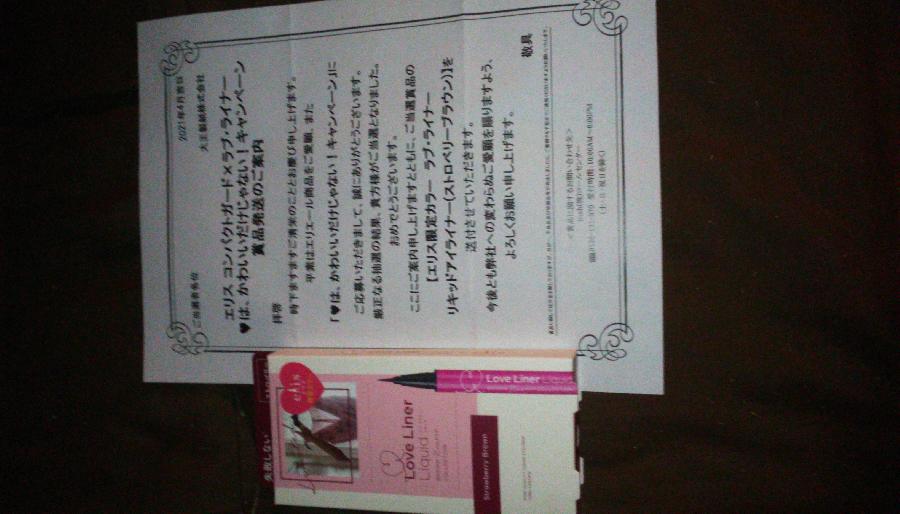 ご当選者各位
2021年4月吉日
大王製紙株式会社
エリス コンパクトガード×ラブ・ライナー
♥は、かわいいだけじゃない！キャンペーン
賞品発送のご案内
拝啓
時下ますますご清栄のこととお慶び申し上げます。
平素はエリエール商品をご愛顧、また
「♥は、かわいいだけじゃない！キャンペーン」に
ご応募いただきまして、誠にありがとうございます。
厳正なる抽選の結果、貴方様がご当選となりました。
おめでとうございます。
ここにご案内申し上げますとともに、ご当選賞品の
【エリス限定カラー ラブ・ライナー
リキッドアイライナー（ストロベリーブラウン）】を
送付させていただきます。
今後とも弊社への変わらぬご愛顧を賜りますよう、
よろしくお願い申し上げます。
敬具
＜賞品に関するお問い合わせ先＞
（土・日・祝日を除く）
失敗しない
elis
Love Liner
Liquid
Strawberry Brown
Love Liner Liquid